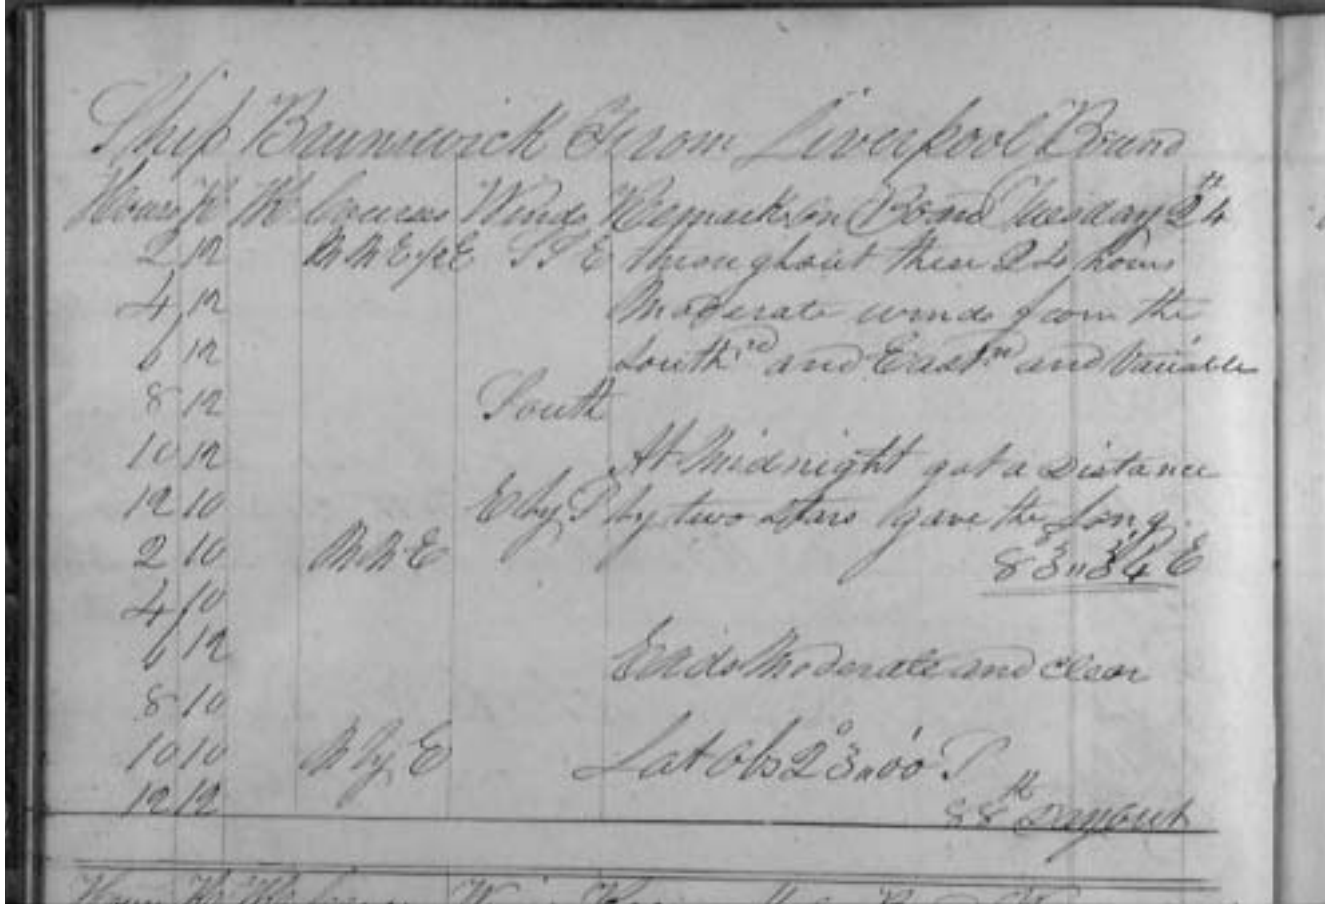 Ship Brunswick From Liverpool Bound
Hours K HK Courses Winds Remarks on Board Tuesday 24th
2 12 NNE 1/2 E SSE throughout these 24 hours
4 12 Moderate winds from the
6 12 South'rd and East'rd and Variable
8 12 South
10 12 At Midnight got a Distance
12 10 E by S by two Stars gave the Long
2 10 NNE 83° 34' E
4 10
6 12 Ends Moderate and clear
8 10
10 10 N by E Lat Obs 23° 00' S
12 12 88th Day out
Hours